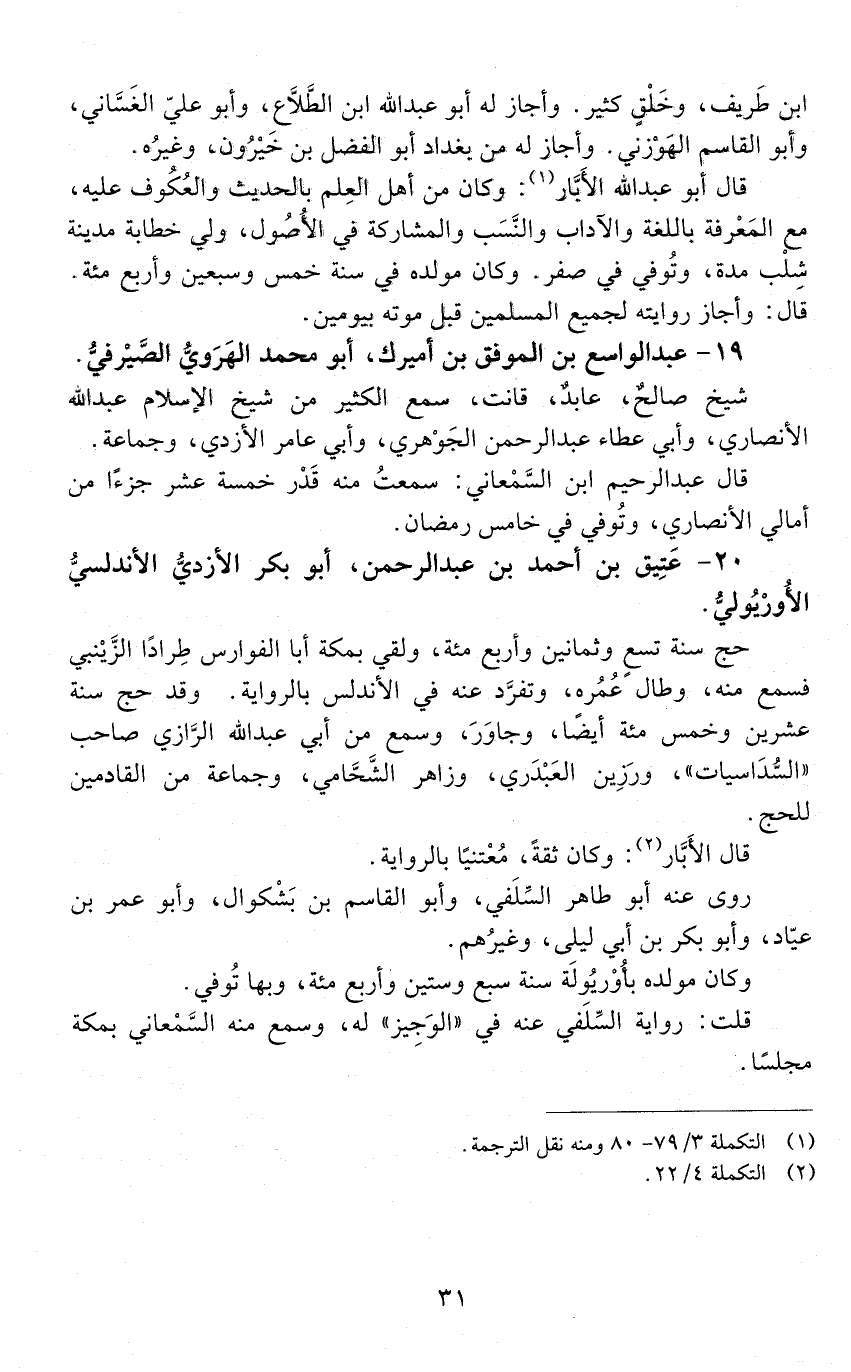 ابن طَريف، وخَلْقٍ كثير. وأجاز له أبو عبدالله ابن الطَّلاَّع، وأبو عليّ الغَسَّاني،
وأبو القاسم الهَوْزني. وأجاز له من بغداد أبو الفضل بن خَيْرُون، وغيرُه.
قال أبو عبدالله الأَبَّار(١): وكان من أهل العِلم بالحديث والعُكُوف عليه،
مع المَعْرفة باللغة والآداب والنَّسَب والمشاركة في الأُصُول، ولي خطابة مدينة
شِلْب مدة، وتُوفي في صفر. وكان مولده في سنة خمس وسبعين وأربع مئة.
قال: وأجاز روايته لجميع المسلمين قبل موته بيومين.
١٩- عبدالواسع بن الموفق بن أميرك، أبو محمد الهَرَويُّ الصَّيْرفيُّ.
شيخ صالحٌ، عابدٌ، قانت، سمع الكثير من شيخ الإسلام عبدالله
الأنصاري، وأبي عطاء عبدالرحمن الجَوْهري، وأبي عامر الأزدي، وجماعة.
قال عبدالرحيم ابن السَّمْعاني: سمعتُ منه قَدْر خمسة عشر جزءًا من
أمالي الأنصاري، وتُوفي في خامس رمضان.
٢٠- عَتِيق بن أحمد بن عبدالرحمن، أبو بكر الأزديُّ الأندلسيُّ
الأُورْيُوليُّ.
حج سنة تسعٍ وثمانين وأربع مئة، ولقي بمكة أبا الفوارس طِرادًا الزَّيْنبي
فسمع منه، وطال عُمُره، وتفرَّد عنه في الأندلس بالرواية. وقد حج سنة
عشرين وخمس مئة أيضًا، وجاوَرَ، وسمع من أبي عبدالله الرَّازي صاحب
«السُّدَاسيات»، ورَزِين العَبْدَري، وزاهر الشَّحَّامي، وجماعة من القادمين
للحج.
قال الأَبَّار(٢): وكان ثقةً، مُعْتنيًا بالرواية.
روى عنه أبو طاهر السِّلَفي، وأبو القاسم بن بَشْكوال، وأبو عمر بن
عيّاد، وأبو بكر بن أبي ليلى، وغيرُهم.
وكان مولده بأُوْريُولَة سنة سبع وستين وأربع مئة، وبها تُوفي.
قلت: رواية السِّلَفي عنه في «الوَجِيز» له، وسمع منه السَّمْعاني بمكة
مجلسًا.
(١) التكملة ٣/ ٧٩- ٨٠ ومنه نقل الترجمة.
(٢) التكملة ٤/ ٢٢.
٣١